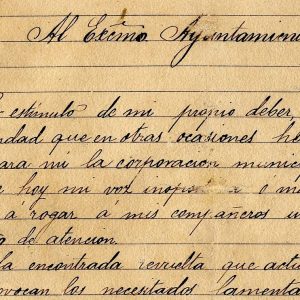 Al Excmo. Ayuntamien
estimulo de mi propio deber,
dad que en otras ocasiones h
ara mi la corporacion munic
hoy mi voz inop
á rogar á mis compañeros u
de atencion.
la encontrada revuelta que act
vocan los necesitados lamenta